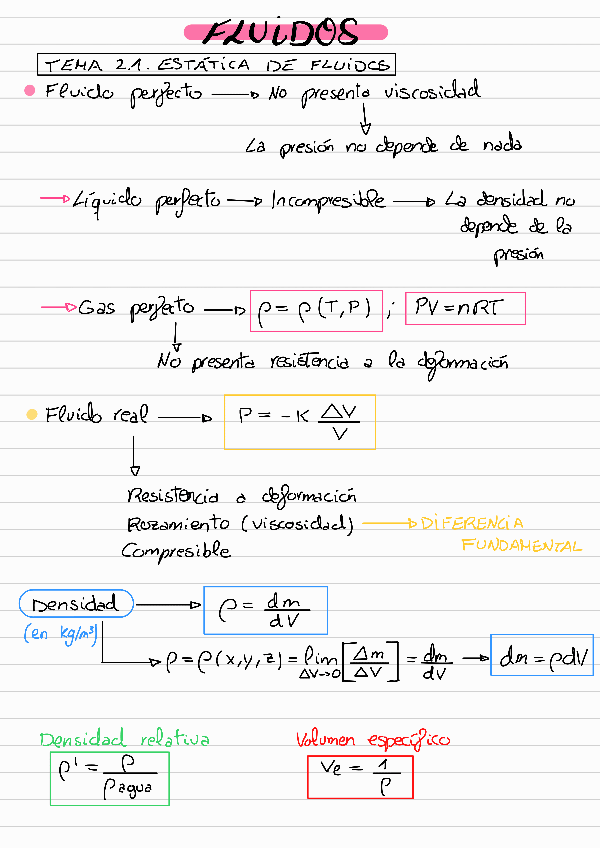 FLUIDOS
TEMA 2.1. ESTÁTICA DE FLUIDOS
Fluido perfecto → No presenta viscosidad
↓
La presión no depende de nada
→ Líquido perfecto → Incompresible → La densidad no
depende de la
presión
→ Gas perfecto → ρ = ρ(T,P) ; PV = nRT
↓
No presenta resistencia a la deformación
Fluido real → P = -K ΔV/V
↓
Resistencia a deformación
Rozamiento (viscosidad) → DIFERENCIA
FUNDAMENTAL
Compresible
Densidad → ρ = dm/dV
(en kg/m³)
→ ρ = ρ(x,y,z) = lim ΔV→0 [Δm/ΔV] = dm/dV → dm = ρdV
Densidad relativa
ρ' = ρ/ρagua
Volumen específico
Ve = 1/ρ